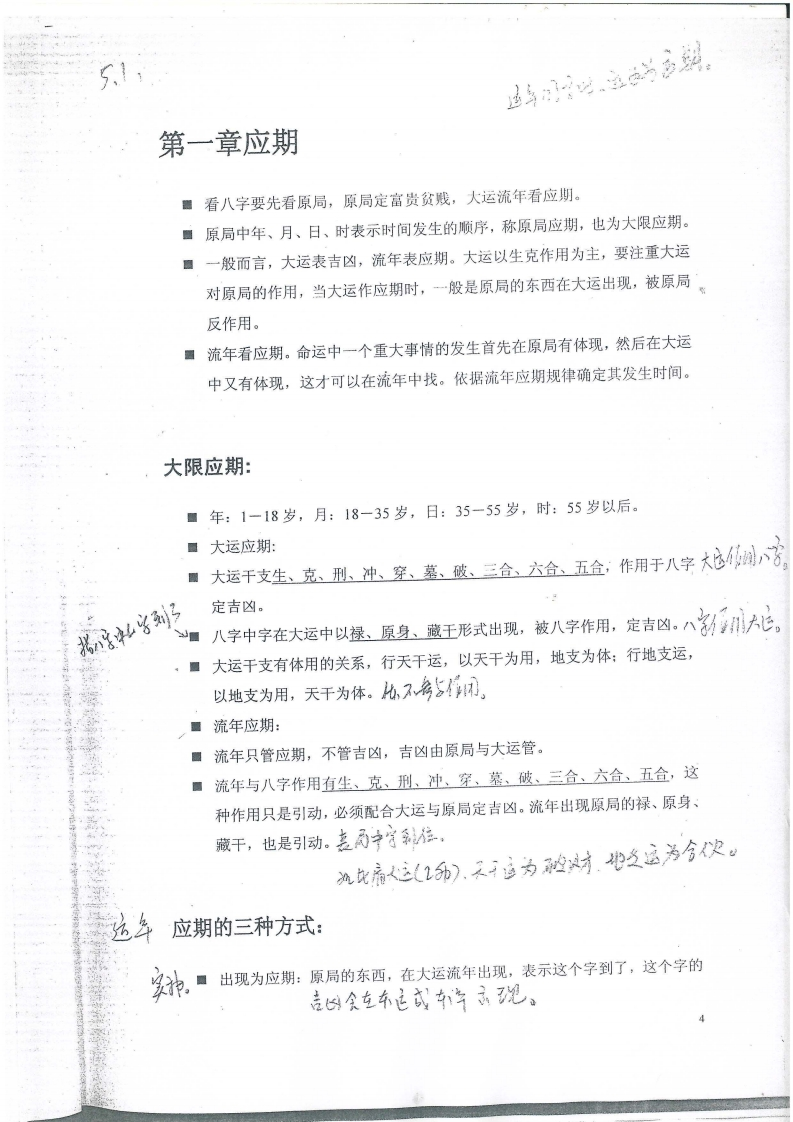 5.1.
第一章应期
■ 看八字要先看原局，原局定富贵贫贱，大运流年看应期。
■ 原局中年、月、日、时表示时间发生的顺序，称原局应期，也为大限应期。
■ 一般而言，大运表吉凶，流年表应期。大运以生克作用为主，要注重大运
对原局的作用，当大运作应期时，一般是原局的东西在大运出现，被原局
反作用。
■ 流年看应期。命运中一个重大事情的发生首先在原局有体现，然后在大运
中又有体现，这才可以在流年中找。依据流年应期规律确定其发生时间。
大限应期:
■ 年：1－18 岁，月：18－35 岁，日：35－55 岁，时：55 岁以后。
■ 大运应期:
■ 大运干支生、克、刑、冲、穿、墓、破、三合、六合、五合，作用于八字 大运作用八字。
定吉凶。
■ 八字中字在大运中以禄、原身、藏干形式出现，被八字作用，定吉凶。八字作用大运。
■ 大运干支有体用的关系，行天干运，以天干为用，地支为体；行地支运，
以地支为用，天干为体。体不参与作用。
■ 流年应期：
■ 流年只管应期，不管吉凶，吉凶由原局与大运管。
■ 流年与八字作用有生、克、刑、冲、穿、墓、破、三合、六合、五合，这
种作用只是引动，必须配合大运与原局定吉凶。流年出现原局的禄、原身、
藏干，也是引动。表局中字到位。
天干运为破财，地支运为合伙。
运年 应期的三种方式：
实神。■ 出现为应期：原局的东西，在大运流年出现，表示这个字到了，这个字的
吉凶会在本运或本年出现。
4